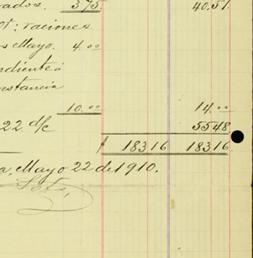 rados. 3 75 40.51
ot: raciones
s Mayo. 4.00
ndiente á
nstancia
10.00 14.00
22 d/c 55 48
183 16 183 16
a, Mayo 22 de 1910.